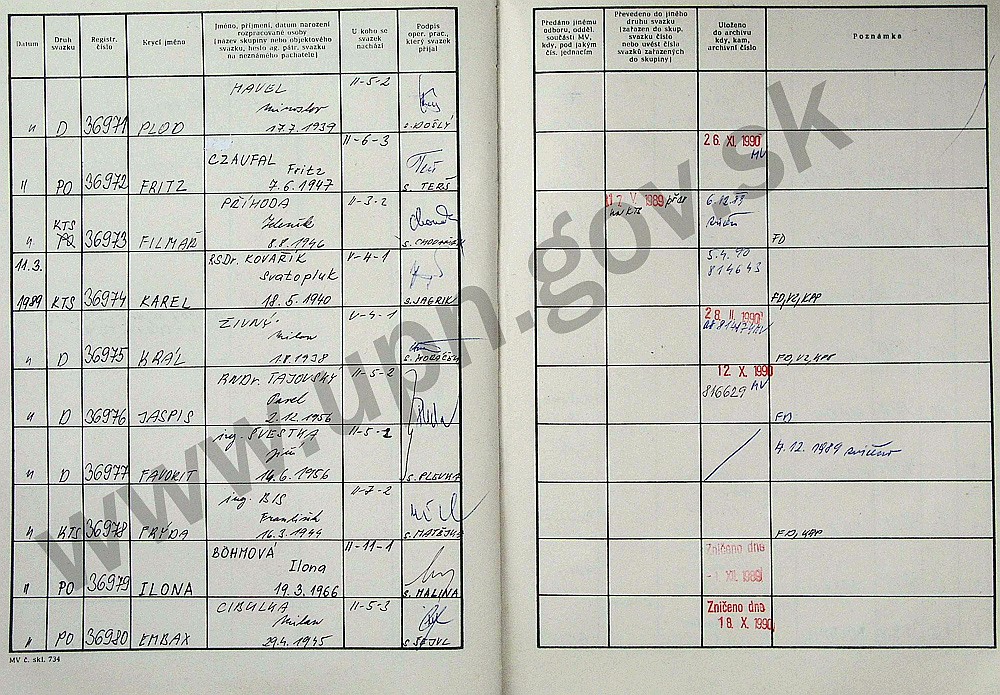 Datum
Druh svazku
Registr. číslo
Krycí jméno
Jméno, příjmení, datum narození
rozpracované osoby
(název skupiny nebo objektového
svazku, heslo ag. pátr. svazku
na neznámého pachatele)
U koho se
svazek
nachází
Podpis
oper. prac.,
který svazek
přijal
Předáno jinému
odboru, odděl.
součásti MV,
kdy, pod jakým
čís. jednacím
Převedeno do jiného
druhu svazku
(zařazen do skup.
svazku číslo
nebo uvést čísla
svazků zařazených
do skupiny)
Uloženo
do archivu
kdy, kam,
archivní číslo
Poznámka
HAVEL II-5-2
Miroslav
" D 36971 PLOD 17.7.1939 s. DOŠLÝ
CZAUFAL II-6-3 26. XI. 1990
Fritz MV
" PO 36972 FRITZ 7.6.1947 s. TERŠ
PŘÍHODA II-3-2 V. 1989 6.12.89
KTS Zdeněk na KTS
" PO 36973 FILMAŘ 8.8.1946 FD
11.3. RSDr. KOVAŘÍK V-4-1 5.4.90
Svatopluk 814643
1989 KTS 36974 KAREL 18.5.1940 s. JAGRIK FD,VZ,KPP
ŽIVNÝ V-4-1 28. II. 1990
Milan MV
" D 36975 KRÁL 1.8.1938 FD,VZ,KPP
RNDr. TAJOVSKÝ II-5-2 12. X. 1990
Pavel 816629 MV
" D 36976 JASPIS 2.12.1956 FD
ing. ŠVESTKA II-5-2 4.12.1989 zničeno
Jiří
" D 36977 FAVORIT 14.6.1956 s. PLEVKA
ing. BIS II-7-2
František
" KTS 36978 FRÝDA 16.3.1944 FD, KPP
BÖHMOVÁ II-11-1 Zničeno dne
Ilona -1. XII. 1989
" PO 36979 ILONA 19.3.1966 s. MALINA
CIBULKA II-5-3 Zničeno dne
Milan 18. X. 1990
" PO 36980 EMBAX 29.4.1945 s. ŠEJVL
MV č. skl. 734
www.upn.gov.sk